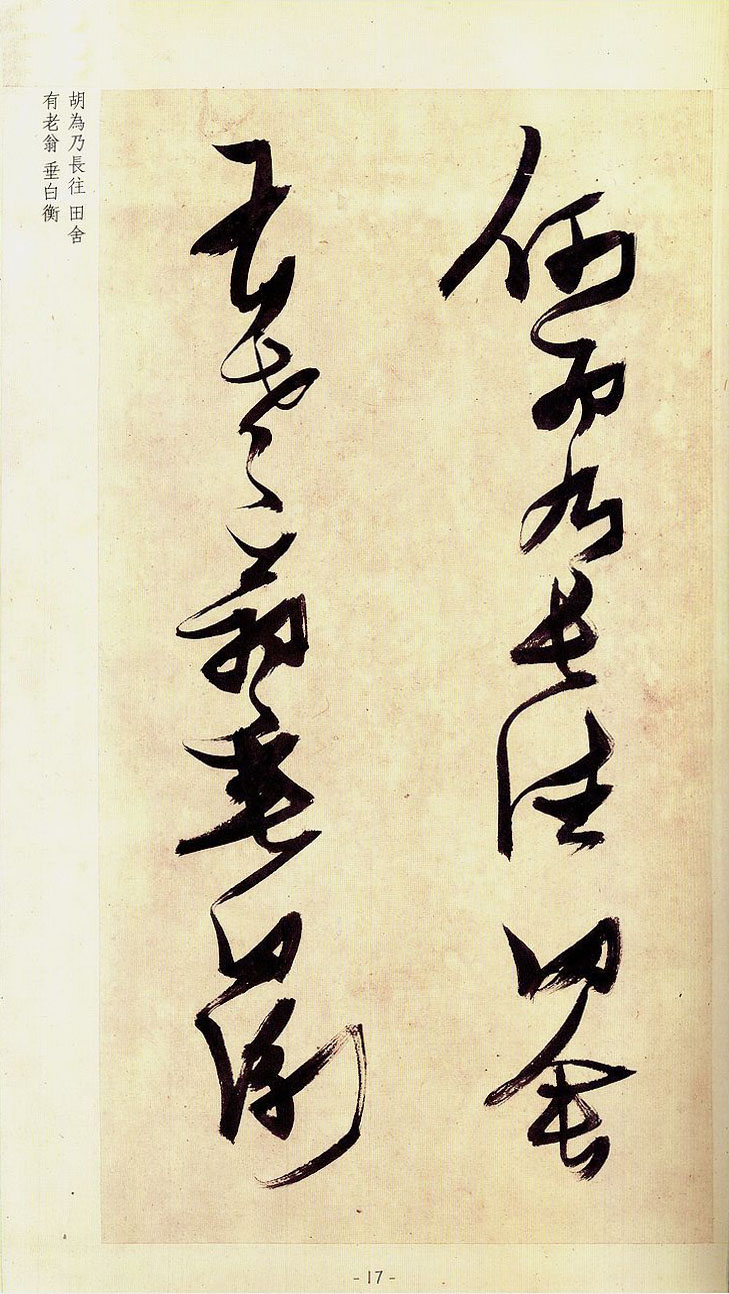 何為乃長往田舍
有老翁垂白衡
胡為乃長往 田舍
有老翁 垂白衡
- 17 -